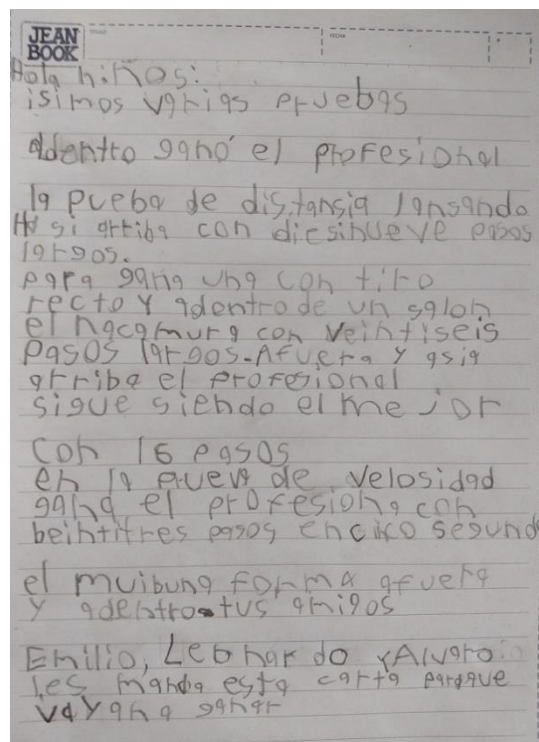 JEAN
BOOK
Hola niños:
isimos varias pruebas
Adentro ganó el profesional
la prueba de distansia lansando
Hasi arriba con diesinueve pasos
largos.
para gana una con tiro
recto y adentro de un salon
el nacamura con veintiseis
pasos largos. Afuera y asia
arriba el profesional
sigue siendo el mejor
con 16 pasos
en la prueva de velosidad
gana el profesiona con
beintitres pasos en cinco segund
el muibuna forma afuera
y adentro tus amigos
Emilio, Leonardo y Alvaro
les manda esta carta paraque
vayan a ganar